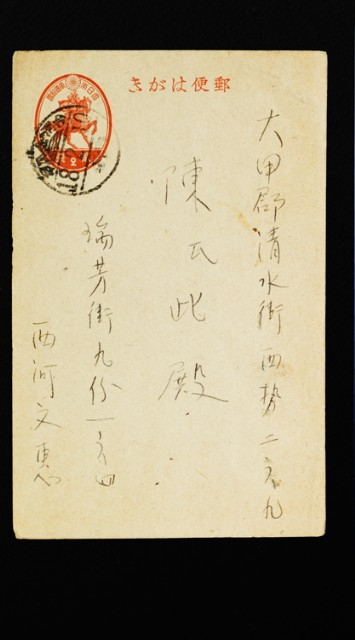 郵便はがき
大甲郡清水街西勢二六九
陳氏此殿
瑞芳街九份一六四
西河文惠